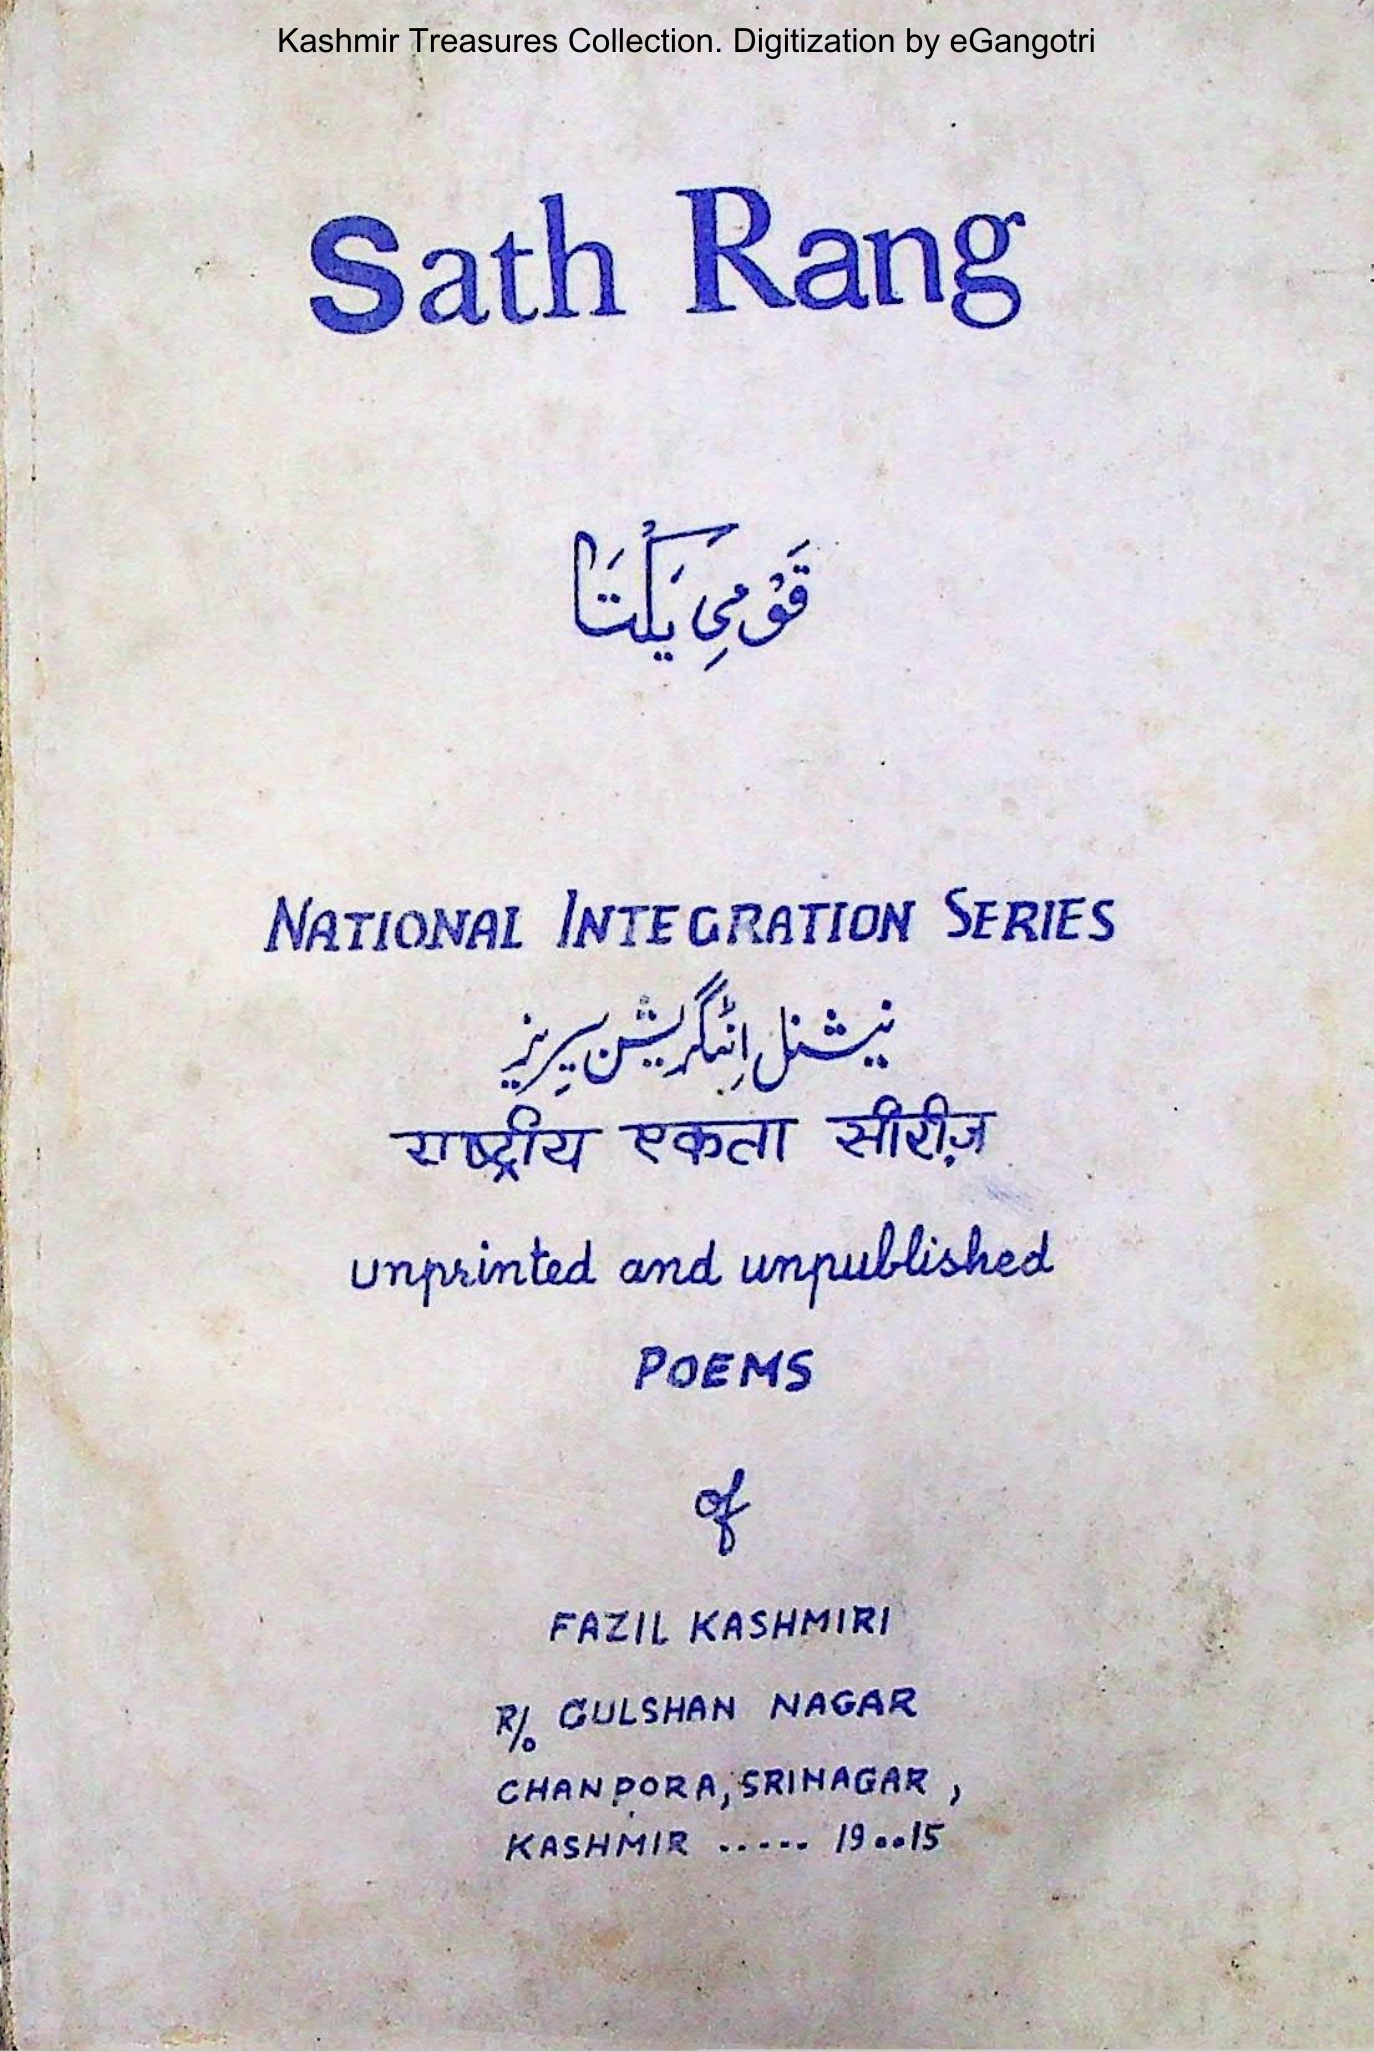 Kashmir Treasures Collection. Digitization by eGangotri
Sath Rang
قَوْمیِ یَکْتَا
NATIONAL INTEGRATION SERIES
نیشنل اِنٹگریشن سیِریز
राष्ट्रीय एकता सीरीज़
unprinted and unpublished
POEMS
of
FAZIL KASHMIRI
R/o GULSHAN NAGAR
CHANPORA, SRINAGAR,
KASHMIR ..... 19..15